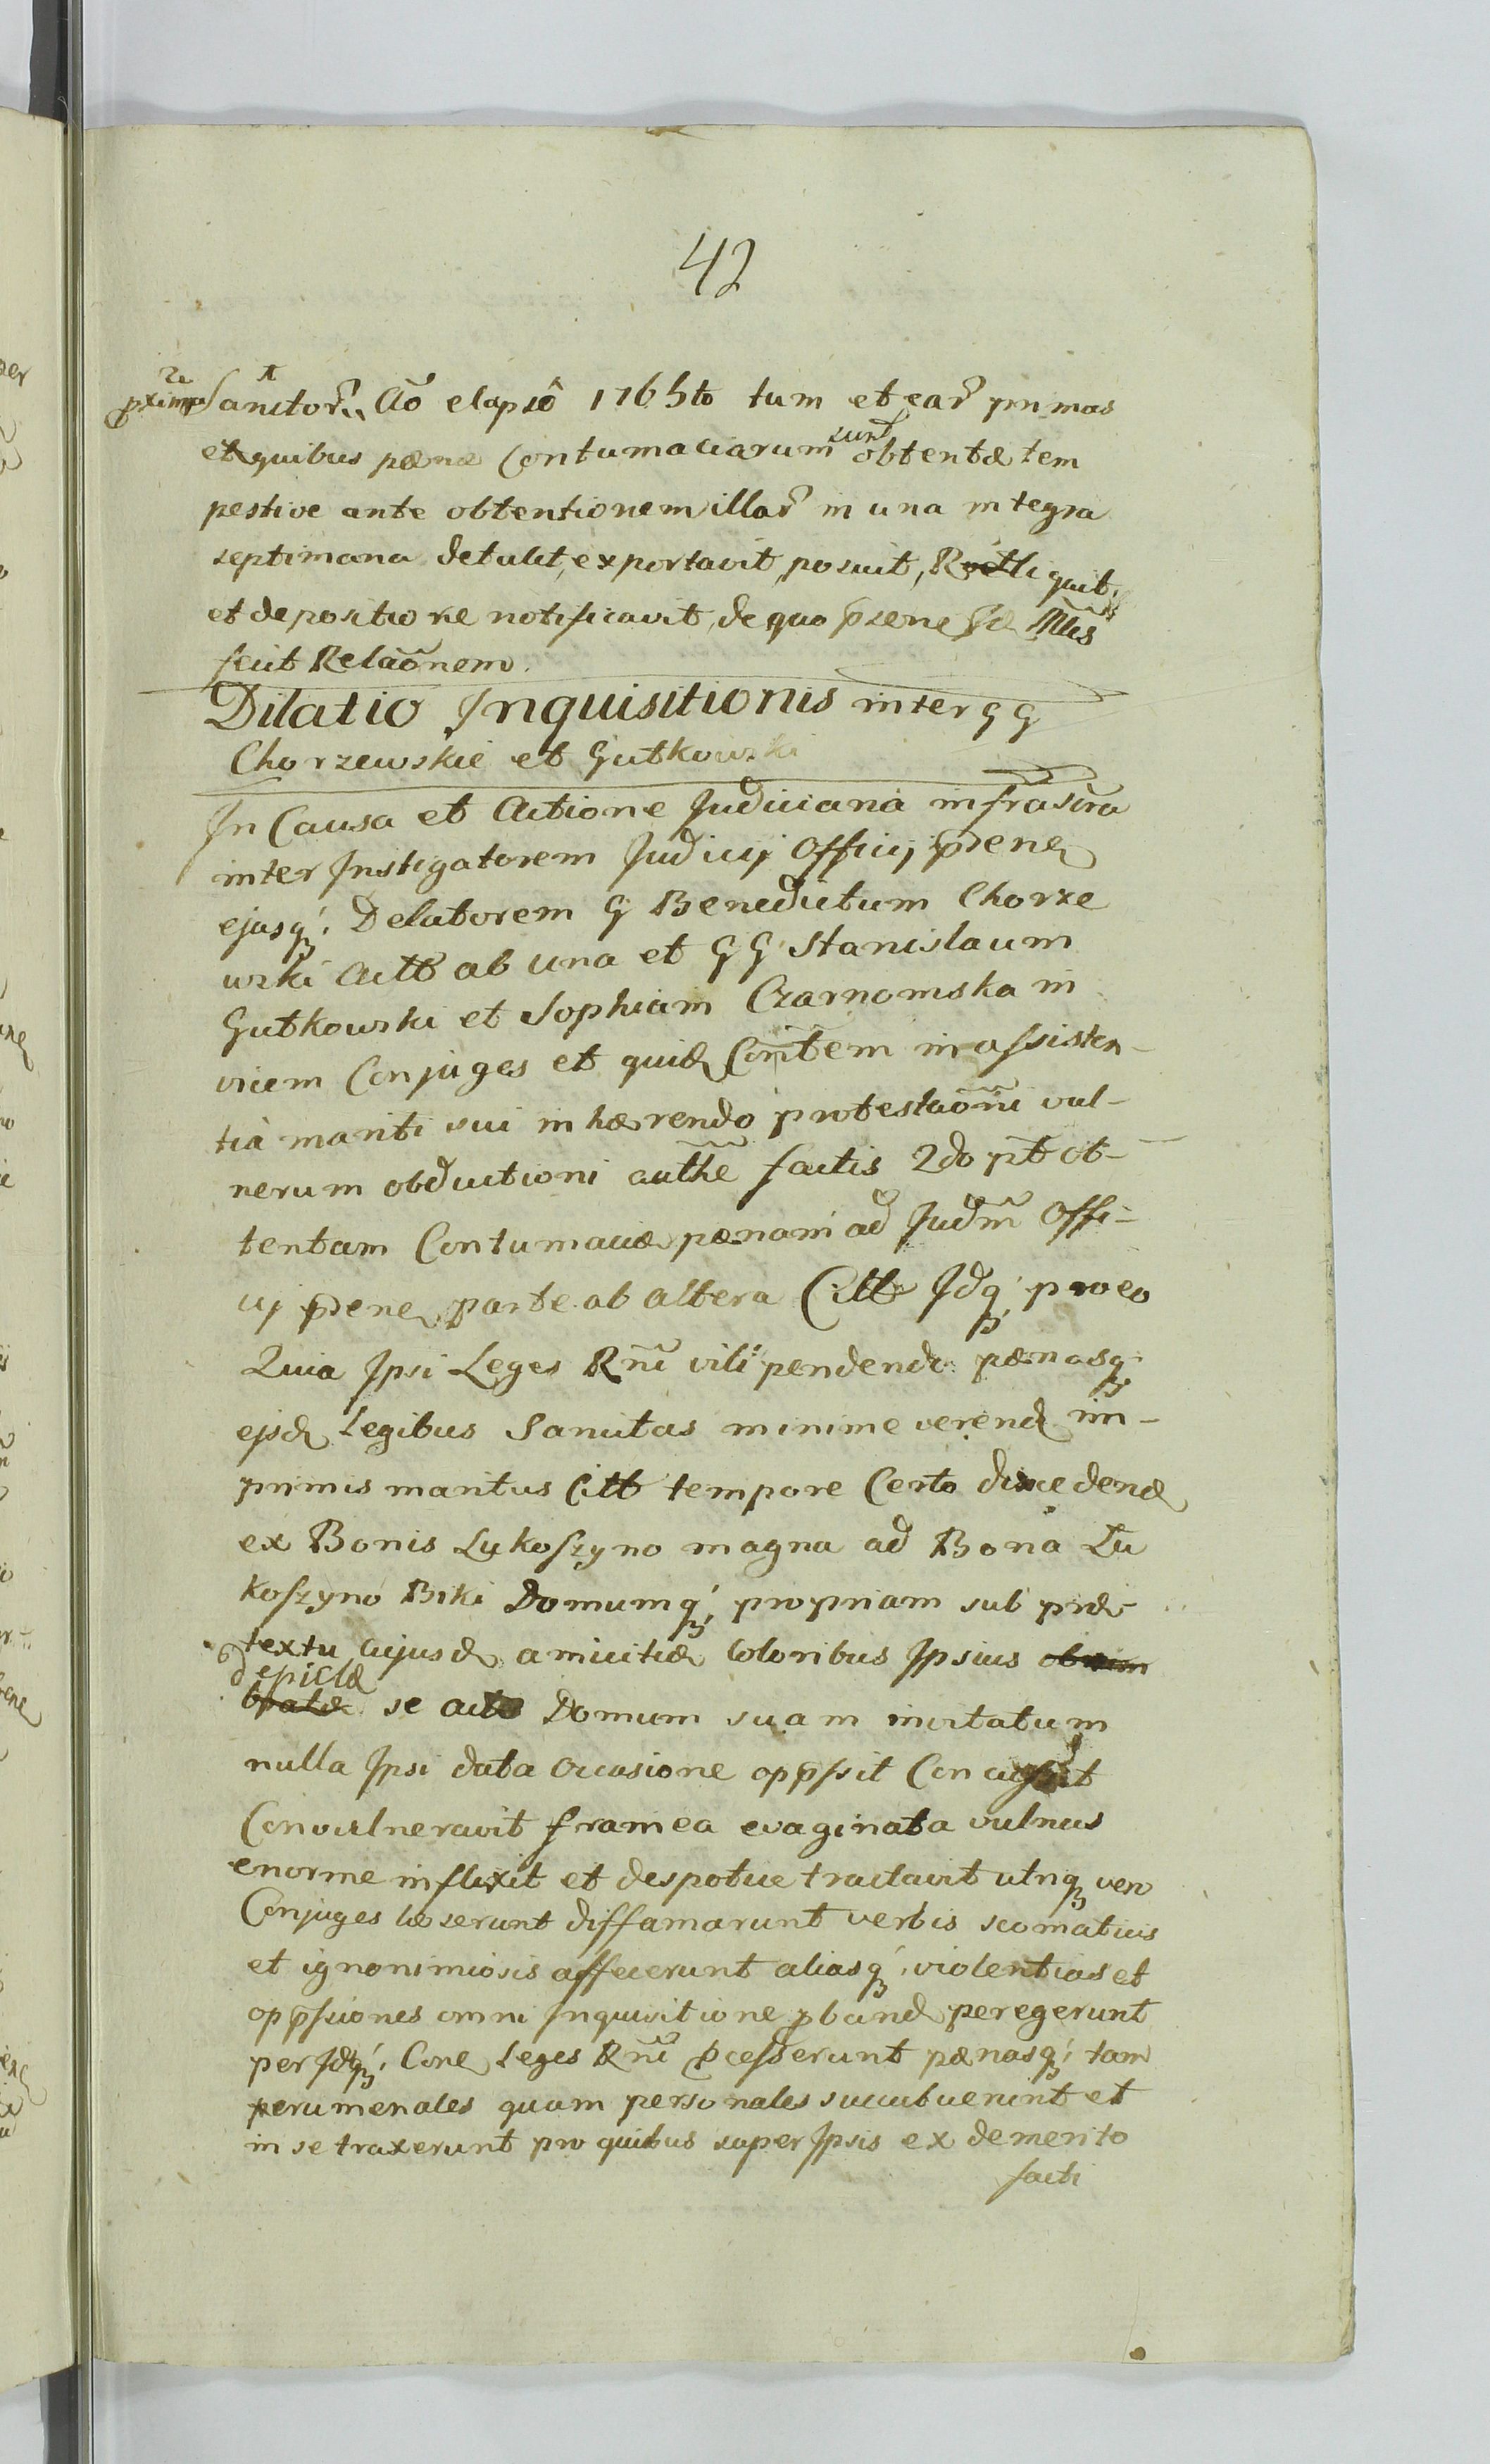 42
pxime Sanctor̃. Aõ elapsô 1765to tum et ear̃ primas
et quibus pænæ Contumaciarum sunt obtentæ tem
pestive ante obtentionem illar̃ in una integra
septimana detulit, exportavit, posuit, Reliquit,
et de positione notificavit, de quo psene Sæ
fecit Relaõnem.
Dilatio Inquisitionis inter GG
Chorzewskie et Gutkowski
In Causa et Actione Judiciaria infrascra
inter Instigatorem Judicij Officij psene
ejusq; Delatorem G Benedictum Chorze
wski Actt ab una et GG Stanislaum
Gutkowski et Sophiam Czarnomska in
vicem Conjuges et quid Contem in assisten-
tia mariti sui inhærendo protestaõni vul-
nerum obductioni authe factis 2do pt ob-
tentam Contumaciæ pænam ad Judm̃ Offi-
cij psene parte ab altera Citt Idq; pro eo
Quia Ipsi Leges Rñi vilipendendo pænasq;
ejsd Legibus Sancitas minime verend im-
primis maritus Citt tempore Certo discedend
ex Bonis Lukoszyno magna ad Bona Lu
koszyno Biki Domumq; propriam sub præ-
textu cujusd amicitiæ coloribus Ipsius obum
bratæ depictæ se Domum suam invitatum
nulla Ipsi data occasione oppssit Concussit
Convulneravit framea evaginata vulnus
enorme inflixit et despotice tractavit utriq; vero
Conjuges læserunt diffamarunt verbis scomaticis
et ignonimiosis affecerunt aliasq; violentias et
oppssiones omni Inquisitione pband peregerunt
per Idq; Cone Leges Rñi pcesserunt pænasq; tam
perumenales quam personales succubuerunt et
in se traxerunt pro quibus super Ipsis ex demerito
facti